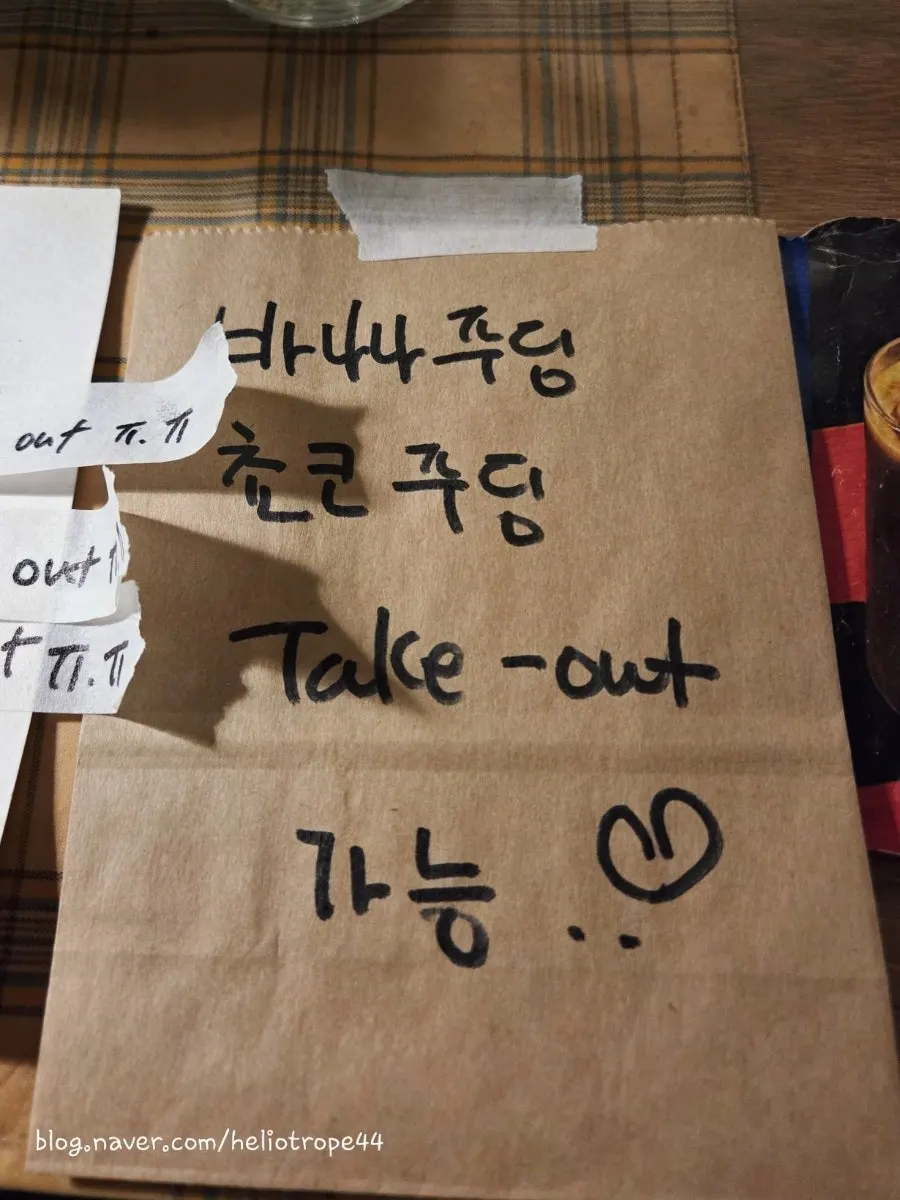 out ㅠ.ㅠ
out
ㅠ.ㅠ
바나나 푸딩
쵸코 푸딩
Take-out
가능..♡
blog.naver.com/heliotrope44